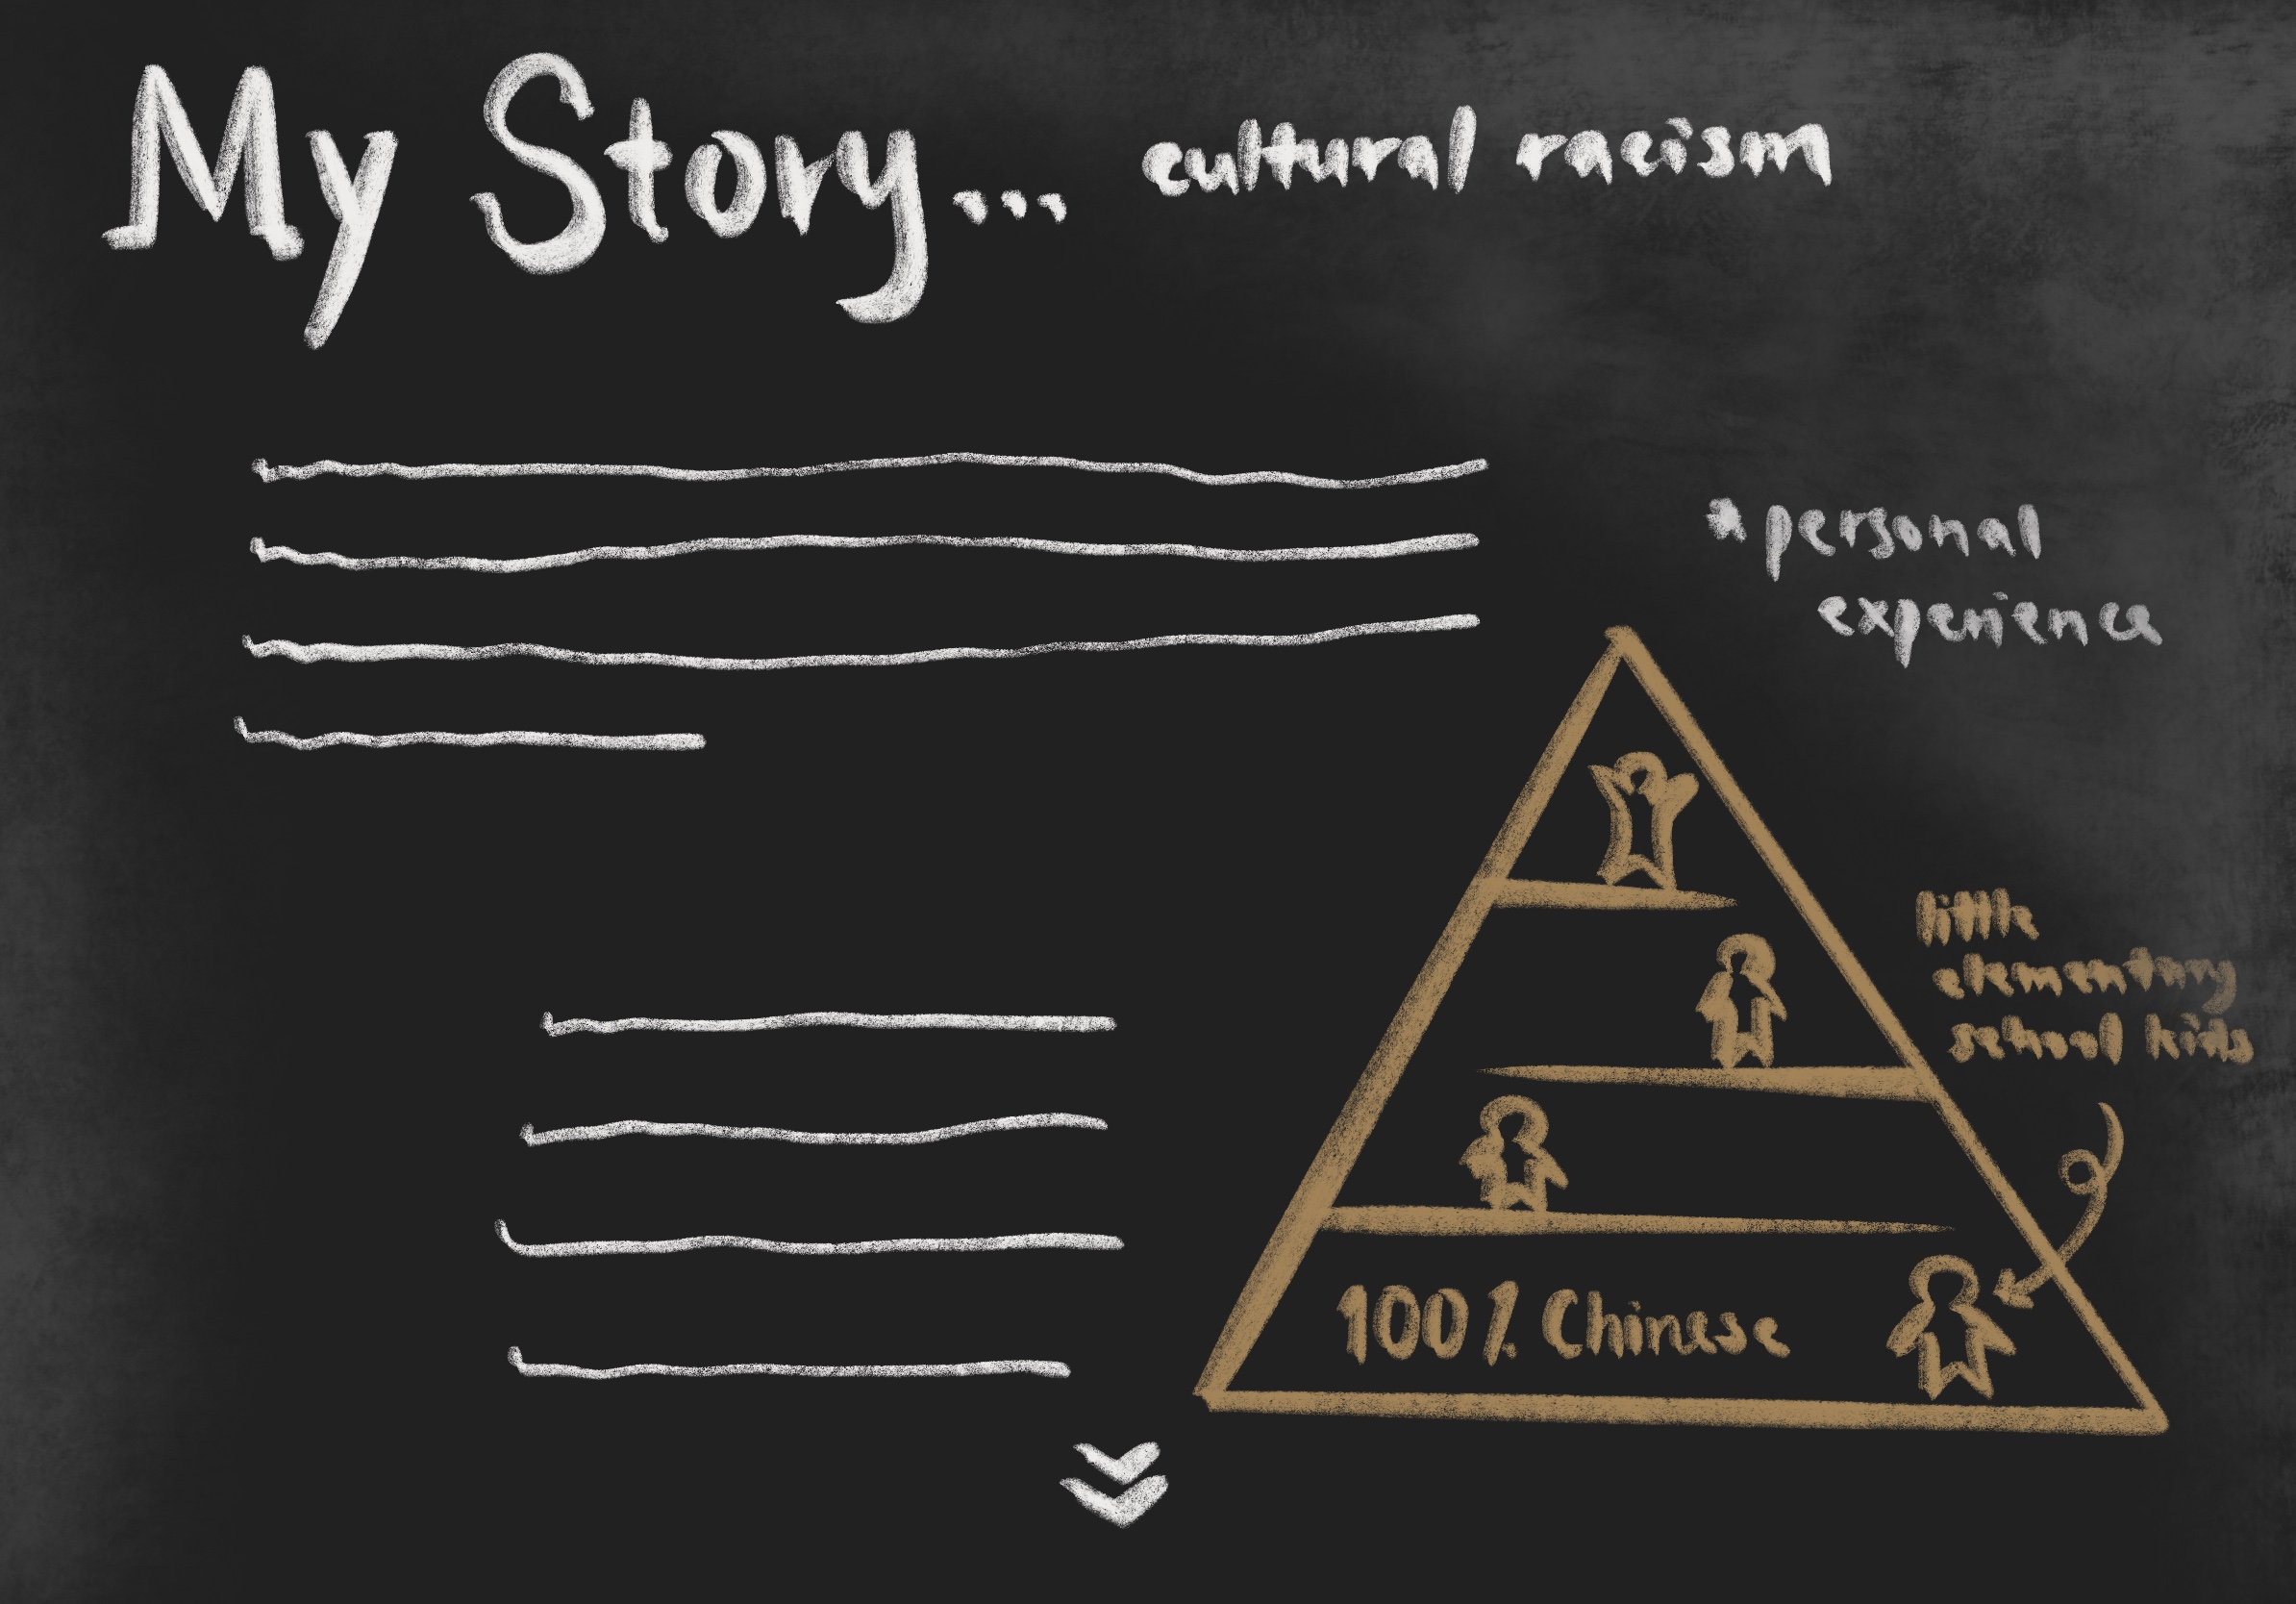 My Story... cultural racism
* personal
experience
little
elementary
school kids
100% Chinese